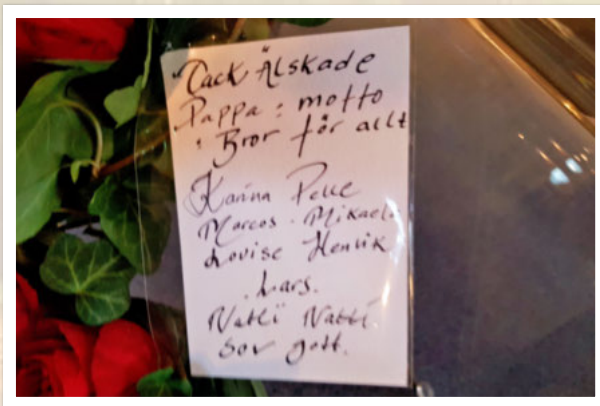 Tack Älskade
Pappa : moffo
: Bror för allt
Karina Pelle
Marcos · Mikael
Lovise Henrik
Lars.
Natti Natti
Sov gott.